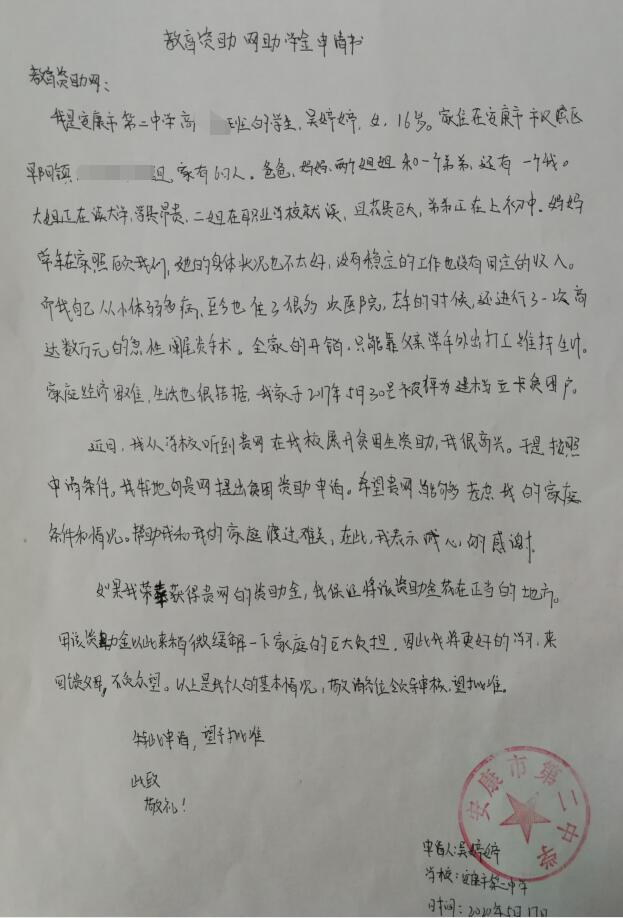 教育资助网助学金申请书
教育资助网：
我是安康市第二中学高 班的学生，吴婷婷，女，16岁。家住在安康市汉滨区
组，家有6口人。爸爸，妈妈，两个姐姐和一个弟弟，还有一个我。
大姐正在读大学，学费昂贵，二姐在职业学校就读，且花费巨大，弟弟正在上初中。妈妈
常年在家照顾我们，她的身体状况也不太好，没有稳定的工作也没有固定的收入。
而我自己从小体弱多病，至今也住了很多次医院，去年的时候，还进行了一次高
达数万元的急性阑尾炎手术。全家的开销，只能靠父亲常年外出打工维持生计。
家庭经济困难，生活也很拮据，我家于2017年5月30号被评为建档立卡贫困户。
近日，我从学校听到贵网在我校展开贫困生资助，我很高兴。于是按照
申请条件，我特地向贵网提出贫困资助申请。希望贵网能够考虑我的家庭
条件和情况。帮助我和我的家庭渡过难关，在此，我表示诚心的感谢！
如果我荣获得贵网的资助金，我保证将该资助金花在正当的地方。
用该资助金以此来稍微缓解一下家庭的巨大负担，因此我将更好的学习，来
回馈父母，不负众望。以上是我个人的基本情况，敬请各位领导审核，望批准。
特此申请，望予批准
此致
敬礼！
安康市第二中学
申请人：吴婷婷
学校：安康市第二中学
时间：2020年5月17日